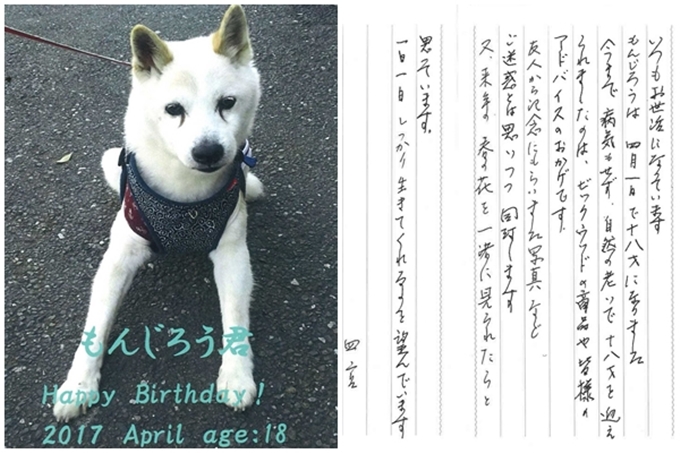 もんじろう君
Happy Birthday!
2017 April age:18
いつもお世話になっています
もんじろうは 四月一日で十八才になりました
今まで 病気もせず、自然の老いで十八才を迎え
られましたのは、ビッグウッドの商品や皆様の
アドバイスのおかげです。
友人から記念にもらいました写真など
ご迷惑とは思いつつ 同封します
又、来年の 春の花を一緒に見られたらと
思っています。
一日一日 しっかり生きてくれることを望んでいます